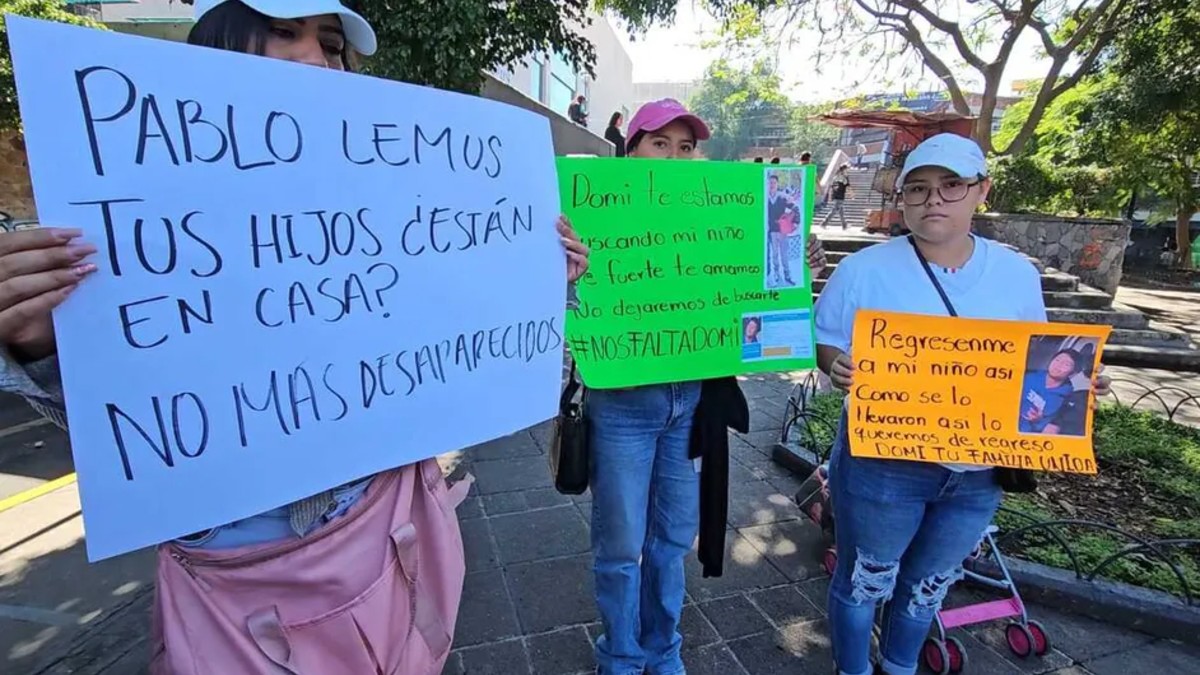 PABLO LEMUS
TUS HIJOS ¿ESTÁN
EN CASA?
NO MÁS DESAPARECIDOS
Domi te estamos
uscando mi niño
e fuerte te amamos
No dejaremos de buscarte
#NOSFALTADOMI
Regresenme
a mi niño asi
Como se lo
llevaron asi lo
queremos de regreso
DOMI TU FAMILIA UNIDA